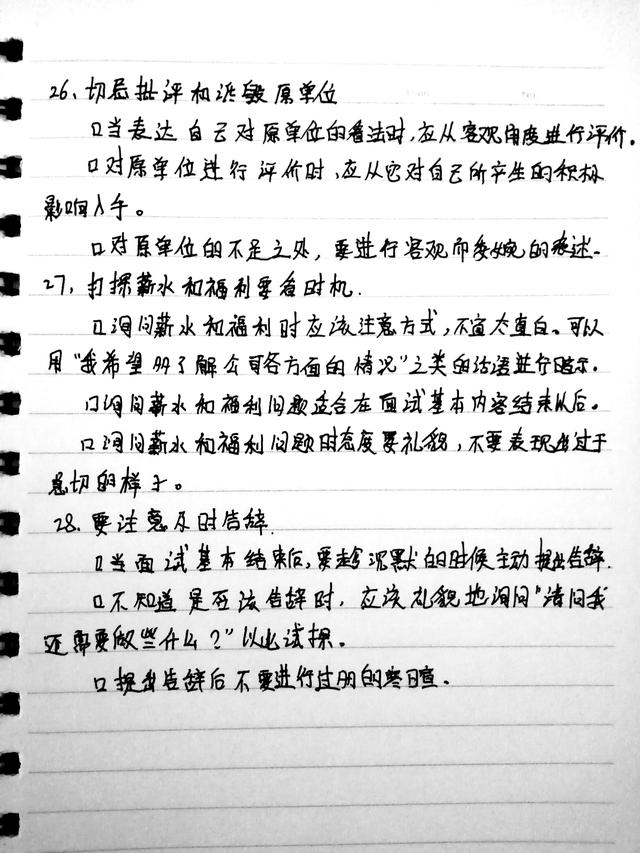 26、切忌批评和泄敏原单位
口当表达自己对原单位的看法时,应从客观角度进行评价.
口对原单位进行评价时,应从它对自己所产生的积极
影响入手。
口对原单位的不足之处,要进行客观而委婉的表述.
27、打探薪水和福利要看时机.
口询问薪水和福利时应该注意方式,不宜太直白。可以
用“我希望多了解公司各方面的情况”之类的话语进行暗示.
口询问薪水和福利问题适合在面试基本内容结束以后。
口询问薪水和福利问题时态度要礼貌,不要表现出过于
急切的样子。
28.要注意及时告辞.
口当面试基本结束后,要趁沉默的时候主动提出告辞.
口不知道是否该告辞时,应该礼貌地询问“请问我
还需要做些什么?”以此试探。
口提出告辞后不要进行过多的寒暄.